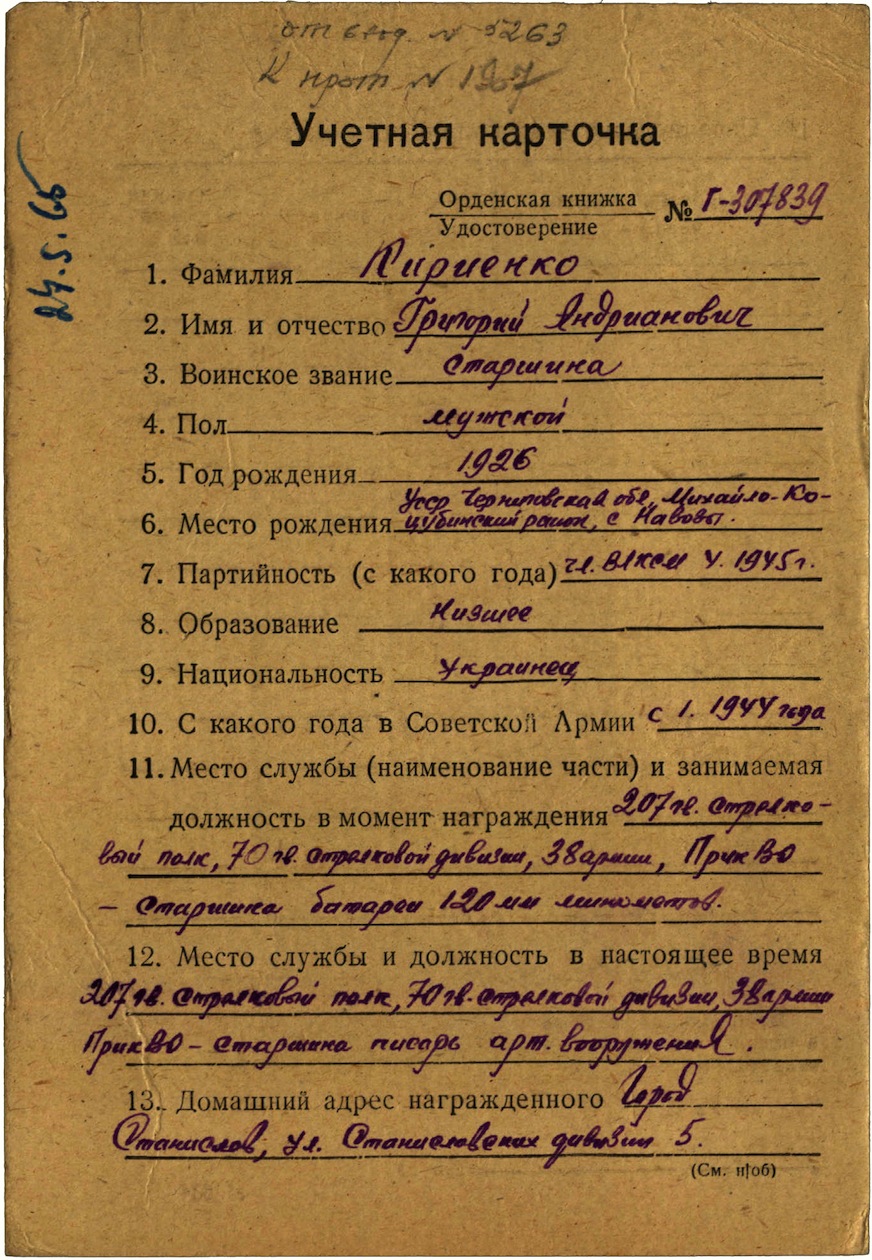 от вход. № 5263
К прот № 1967
Учетная карточка
24.5.65
Орденская книжка
Удостоверение
№ Г-307839
1. Фамилия Кириенко
2. Имя и отчество Григорий Андрианович
3. Воинское звание Старшина
4. Пол мужской
5. Год рождения 1926
Усср Черниговская обл, Михайло-Ко-
6. Место рождения цубинский район, с
7. Партийность (с какого года) чл. ВЛКСМ 1945 г.
8. Образование Низшее
9. Национальность Украинец
10. С какого года в Советской Армии с 1. 1944 года
11. Место службы (наименование части) и занимаемая
должность в момент награждения 207 гв. стрелко-
вый полк, 70 гв. стрелковой дивизии, 38 армии, ПрикВО
– Старшина батареи 120 мм минометов.
12. Место службы и должность в настоящее время
207 гв. стрелковый полк, 70 гв. стрелковой дивизии, 38 армии
ПрикВО – старшина писарь арт. вооружения.
13. Домашний адрес награжденного Город
Станислов, ул. Станиславских дивизии 5.
(См. н/об)